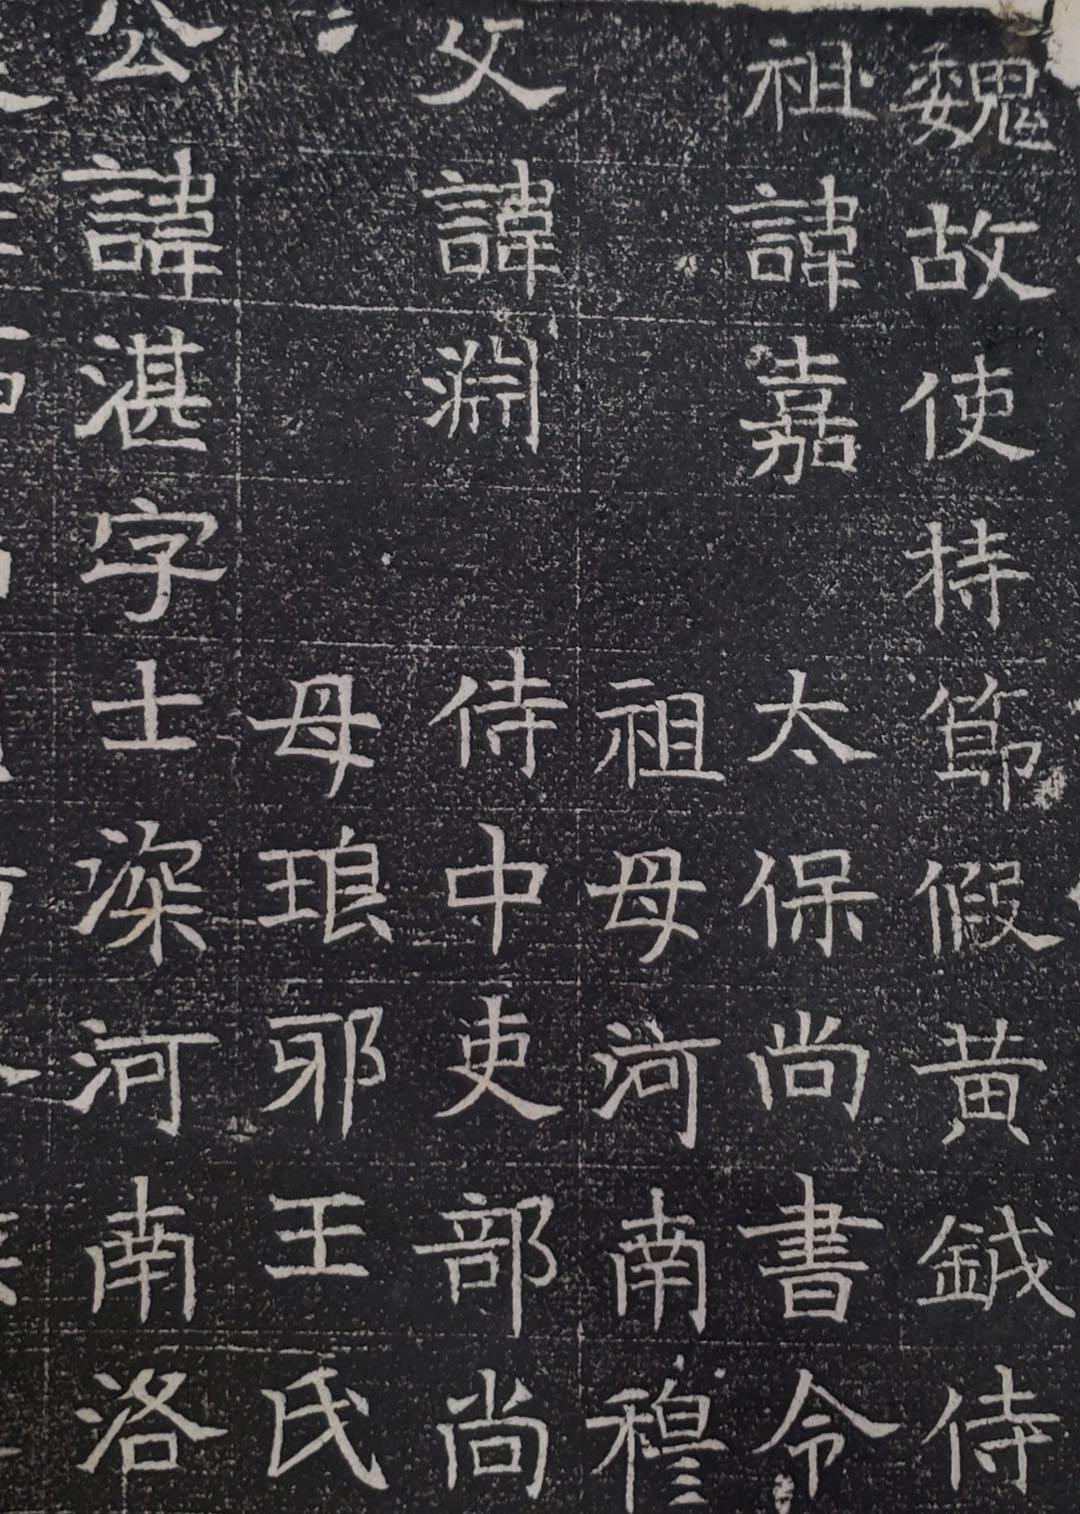 魏故使持節假黃鉞侍
祖諱嘉太保尚書令
祖母河南穆
父諱淵侍中吏部尚
母琅邪王氏
公諱湛字士深河南洛